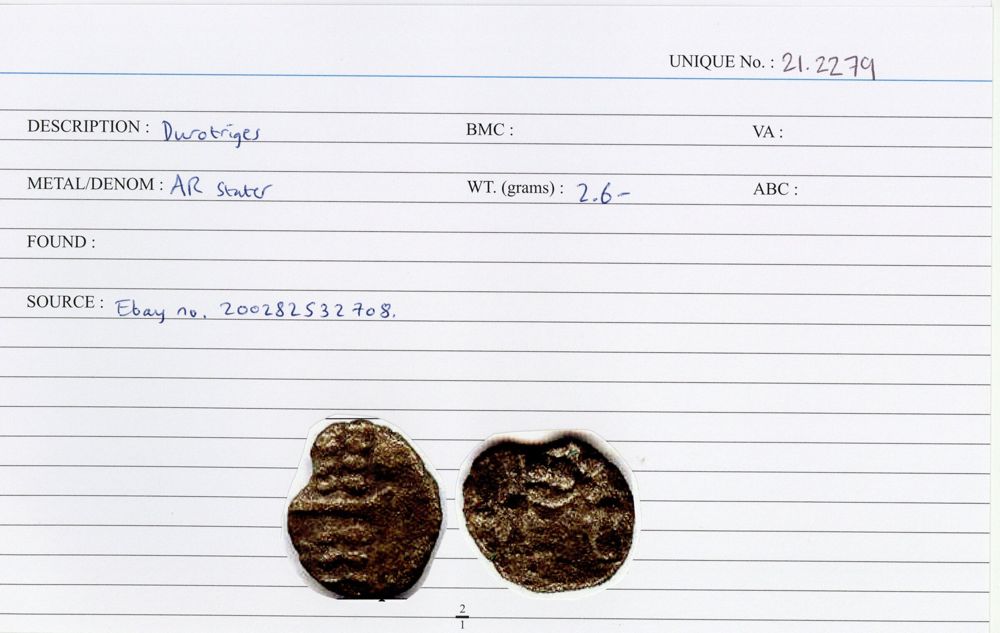 UNIQUE No. : 21.2279
DESCRIPTION : Durotriges BMC : VA :
METAL/DENOM : AR Stater WT. (grams) : 2.6– ABC :
FOUND :
SOURCE : Ebay no. 200282532708.
2
1